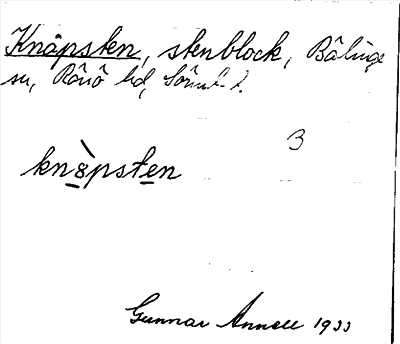 Knåpsten, stenblock, Bälinge
sn, Rönö hd, Söml.
3
kn8̀psten
Gunnar Annell 1933